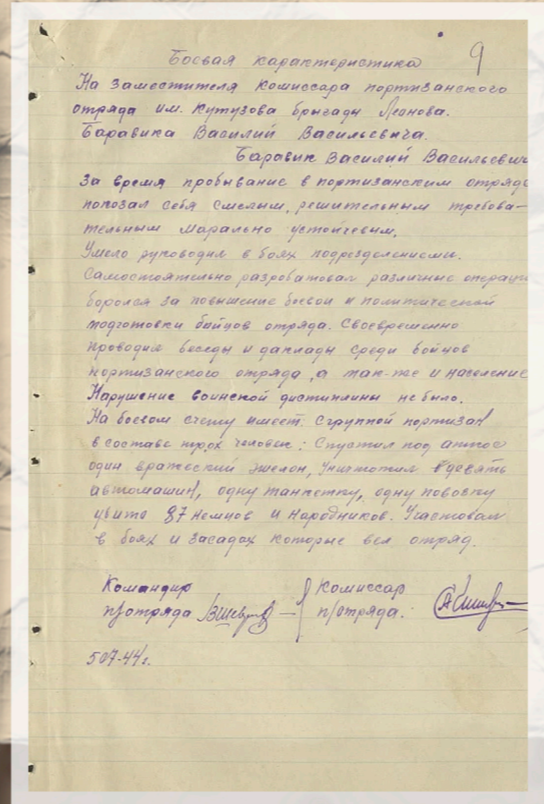 9
Боевая характеристика
На заместителя комиссара портизанского
отряда им. Кутузова бригады Леонова.
Баравика Василий Васильевича.
Баравик Василий Васильевич
За время пробывание в портизанским отряде
попозал себя смелым, решительным требова-
тельным марально устойчевым.
Умело руководил в боях подрозделениеми.
Самостоятельно разроботовал различные операци
боролся за повышение боевои и политическои
подготовки бойцов отряда. Своевременно
проводил беседы и даклады среди бойцов
портизанского отряда, а так-же и население
Нарушение воинской дистиплины не было.
На боевом счету имеет: с группой портизан
в составе человек: Спустил под откос
один вражеский эшелон, Уничтожил девять
автомашин, одну танкетку, одну повозку
убито 87 немцов и народников. Участвовал
в боях и засадах которые вел отряд.
Командир
п/отряда
Комиссар
п/отряда.
507-44г.